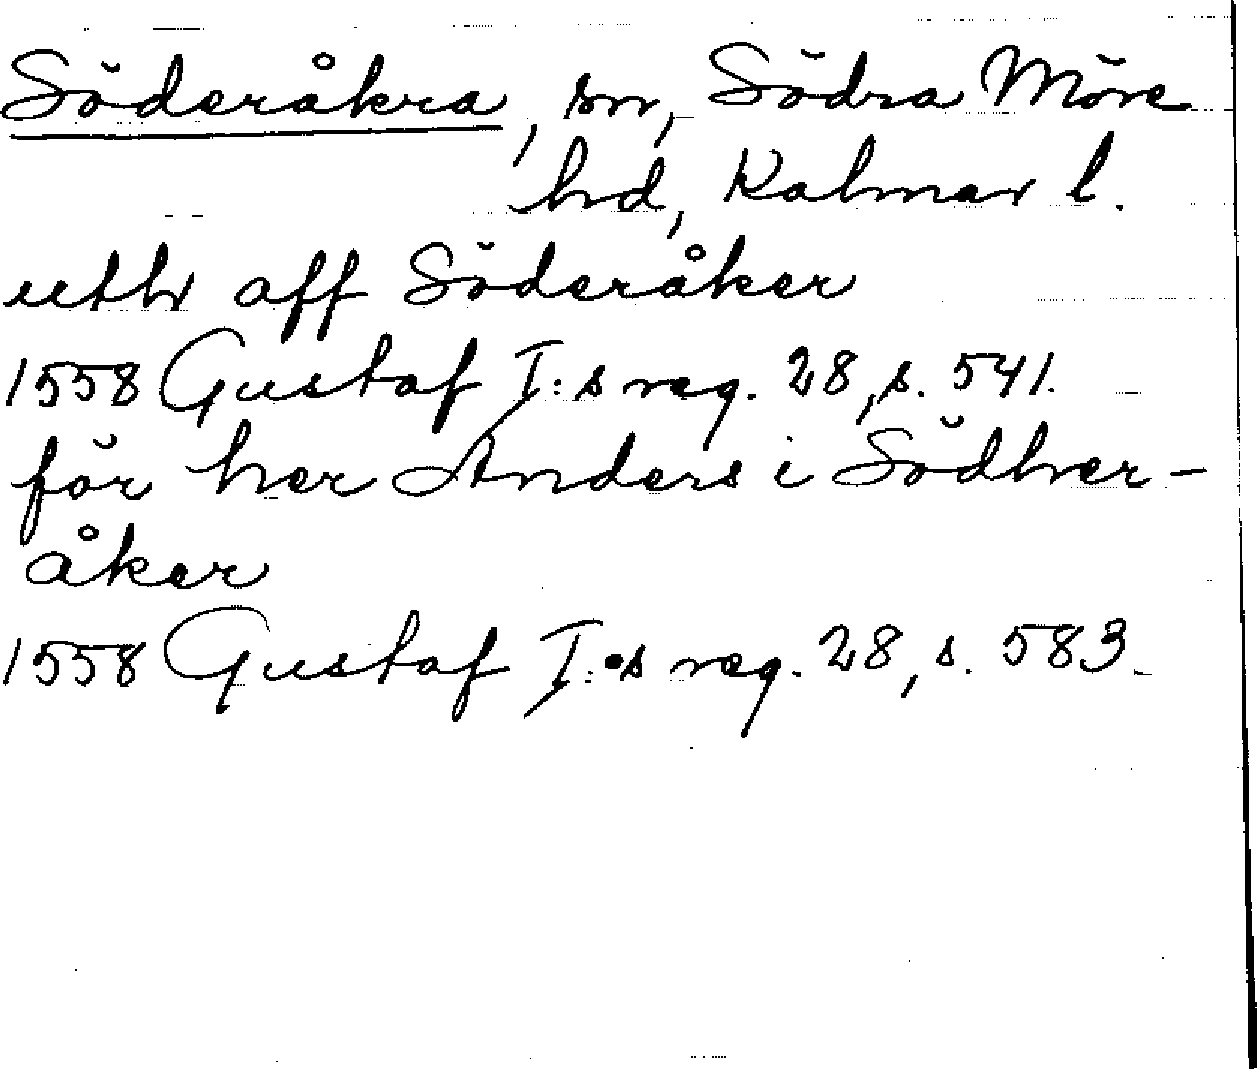 Söderåkra, sn, Södra Möre
hd, Kalmar l.
uthr aff Söderåker
1558 Gustaf I:s reg. 28, s. 541.
för her Anders i Södher-
åker
1558 Gustaf I:s reg. 28, s. 583.